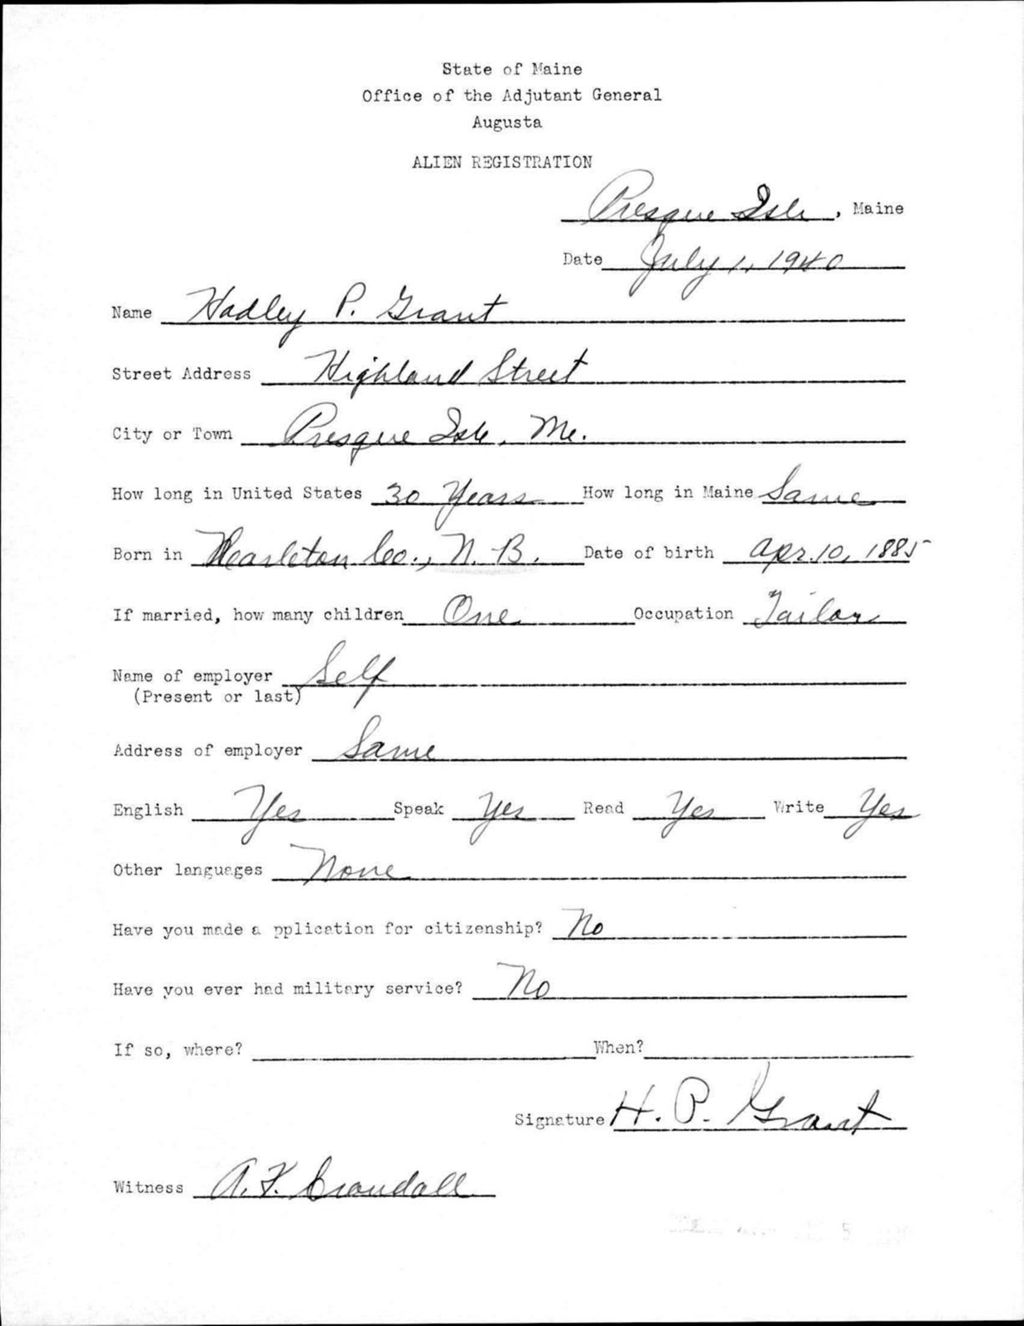 State of Maine
Office of the Adjutant General
Augusta
ALIEN REGISTRATION
Presque Isle, Maine
Date July 1, 1940
Name Hadley P. Grant
Street Address Highland Street
City or Town Presque Isle, Me.
How long in United States 30 Years How long in Maine Same
Born in Carleton Co., N.B. Date of birth Apr. 10, 1885
If married, how many children One Occupation Tailor
Name of employer Self
(Present or last)
Address of employer Same
English Yes Speak Yes Read Yes Write Yes
Other languages None
Have you made a pplication for citizenship? No
Have you ever had military service? No
If so, where? When?
Signature H. P. Grant
Witness A. F. Crandall